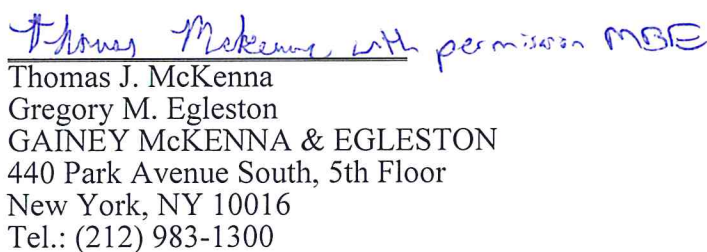 Thomas McKenna with permission MBE
Thomas J. McKenna
Gregory M. Egleston
GAINEY McKENNA & EGLESTON
440 Park Avenue South, 5th Floor
New York, NY 10016
Tel.: (212) 983-1300